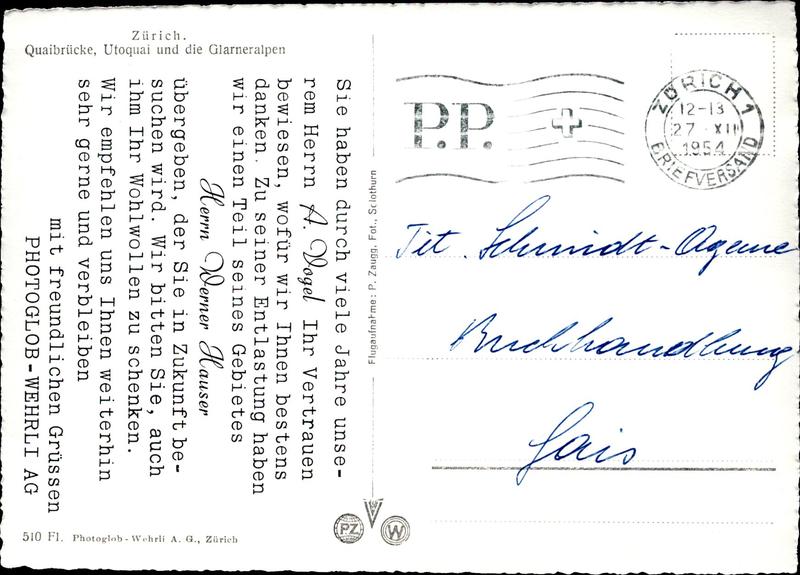 Zürich.
Quaibrücke, Utoquai und die Glarneralpen
Sie haben durch viele Jahre unse-
rem Herrn A. Vogel Ihr Vertrauen
bewiesen, wofür wir Ihnen bestens
danken. Zu seiner Entlastung haben
wir einen Teil seines Gebietes
Herrn Werner Hauser
übergeben, der Sie in Zukunft be-
suchen wird. Wir bitten Sie, auch
ihm Ihr Wohlwollen zu schenken.
Wir empfehlen uns Ihnen weiterhin
sehr gerne und verbleiben
mit freundlichen Grüssen
PHOTOGLOB-WEHRLI AG
510 Fl. Photoglob-Wehrli A. G., Zürich
Flugaufnahme: P. Zaugg, Fot., Solothurn
PZ
W
P.P.
ZÜRICH 1
12-13
27. XII
1954
BRIEFVERSAND
Tit. Schmidt-Agence
Buchhandlung
Gais